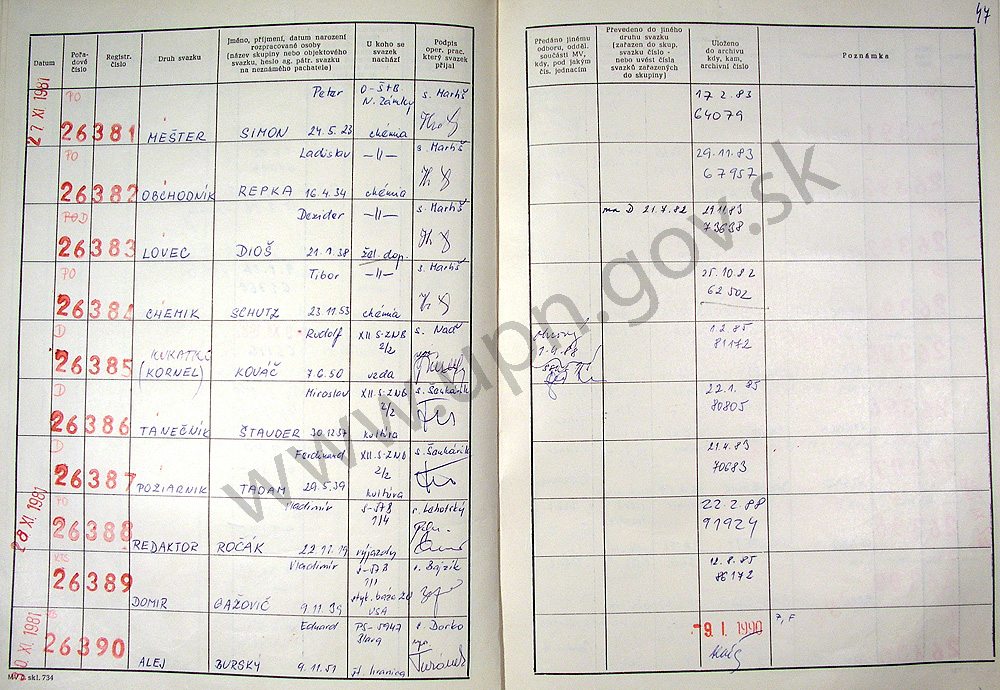 47
Datum
Pořa-
dové
číslo
Registr.
číslo
Druh svazku
Jméno, příjmení, datum narození
rozpracované osoby
(název skupiny nebo objektového
svazku, heslo ag. pátr. svazku
na neznámého pachatele)
U koho se
svazek
nachází
Podpis
oper. prac.
který svazek
přijal
Předáno jinému
odboru, odděl.
součásti MV,
kdy, pod jakým
čís. jednacím
Převedeno do jiného
druhu svazku
(zařazen do skup.
svazku číslo -
nebo uvést čísla
svazků zařazených
do skupiny)
Uloženo
do archivu
kdy, kam,
archivní číslo
Poznámka
27 XI. 1981
PO
26381
MEŠTER
Peter
SIMON 24.5.23
O-ŠtB
N. Zámky
chémia
s. Martiš
17.2.83
64079
PO
26382
OBCHODNÍK
Ladislav
REPKA 16.4.34
—||—
chémia
s. Martiš
29.11.83
67957
POD
26383
LOVEC
Dezider
DIOŠ 21.1.38
—||—
žel. dop.
s. Martiš
ma D 21.7.82
29.11.83
73638
PO
26384
CHEMIK
Tibor
SCHUTZ 23.11.53
—||—
chémia
s. Martiš
25.10.82
62502
D
26385
(KORNEL)
Rudolf
KOVÁČ 7.6.50
XII. S-ZNB
2/2
vzda
s. Naď
1.2.85
81172
D
26386
TANEČNÍK
Miroslav
ŠTAUDER 30.12.37
XII. S-ZNB
2/2
kultúra
s. Šankárik
22.1.85
80805
D
26387
POZIARNIK
Ferdinand
TADAM 29.5.39
XII. S-ZNB
2/2
kultúra
s. Šankárik
21.4.83
70683
28 XI. 1981
PO
26388
REDAKTOR
Vladimír
ROČÁK 22.11.19
1/4
výjazdy
s. Lehotský
22.2.88
91924
26389
DOMIR
Vladimír
GAŽOVIČ 9.11.39
USA
s. Bajzík
12.8.85
86172
XI. 1981
26390
ALEJ
Eduard
BURSKY 9.11.51
PS-5947
št. hranica
s. Dorko
-9. I. 1990
MV č. skl. 734
www.upn.gov.sk